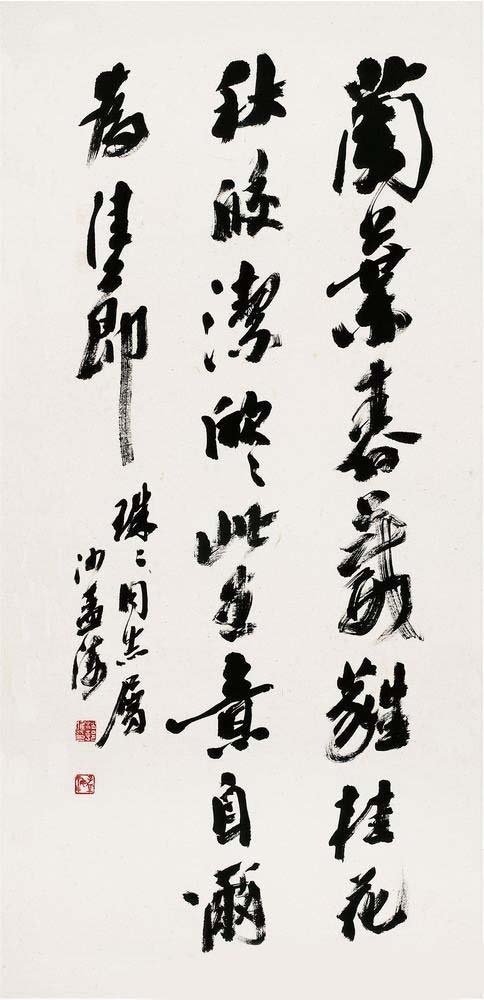 蘭葉春葳蕤桂花
秋皎潔欣欣此生意自爾
為佳節
珠珠同志屬
沙孟海